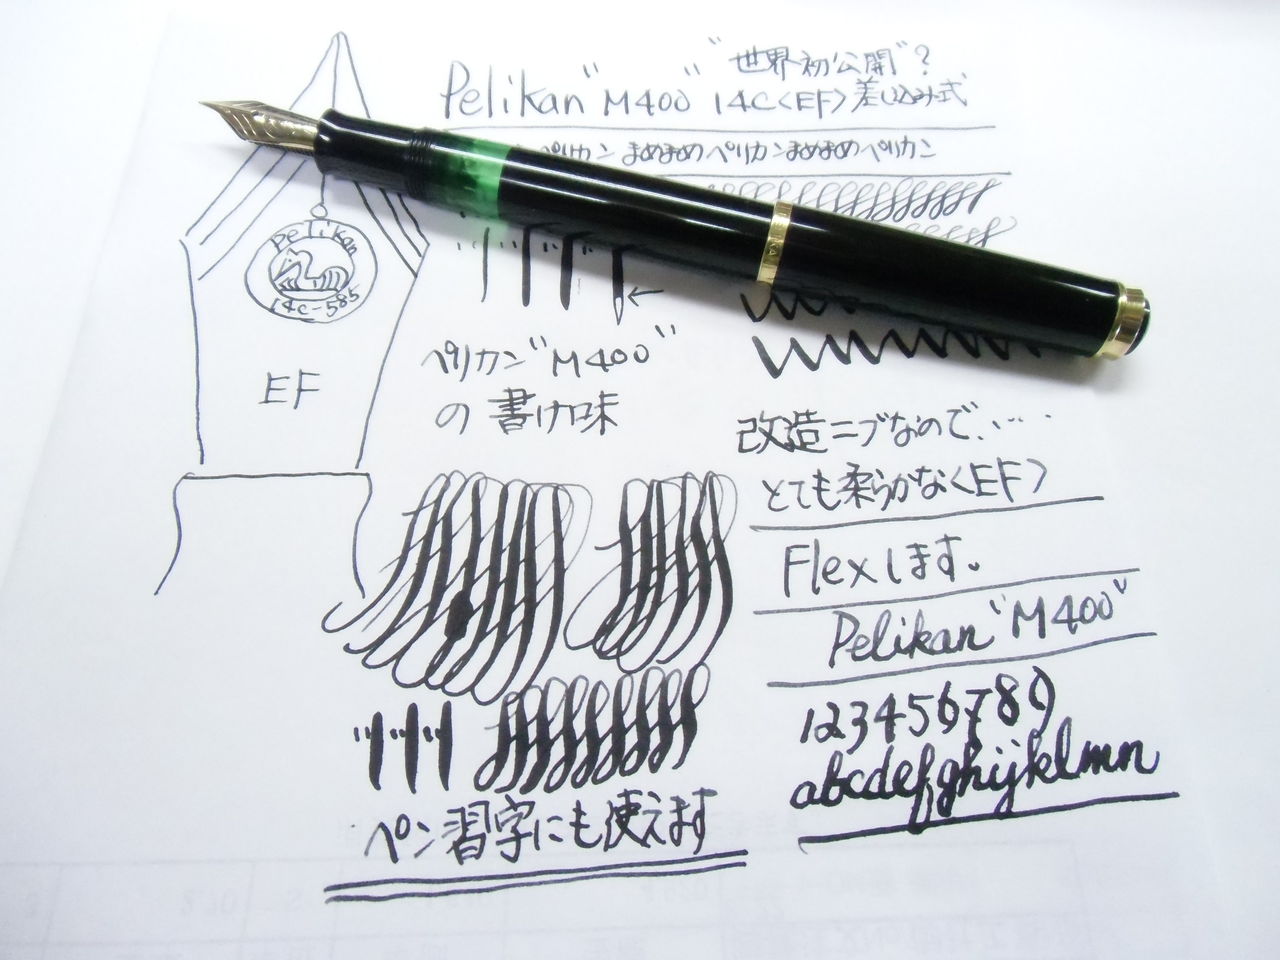 "世界初公開"?
Pelikan "M400" 14C<EF> 差し込み式
ペリカン まめまめペリカンまめまめペリカン
Pelikan
14C-585
EF
ペリカン "M400"
の 書け味
改造ニブなので、……
とても柔らかなく<EF>
Flexします。
Pelikan "M400"
123456789
abcdefghijklmn
ペン習字にも使えます